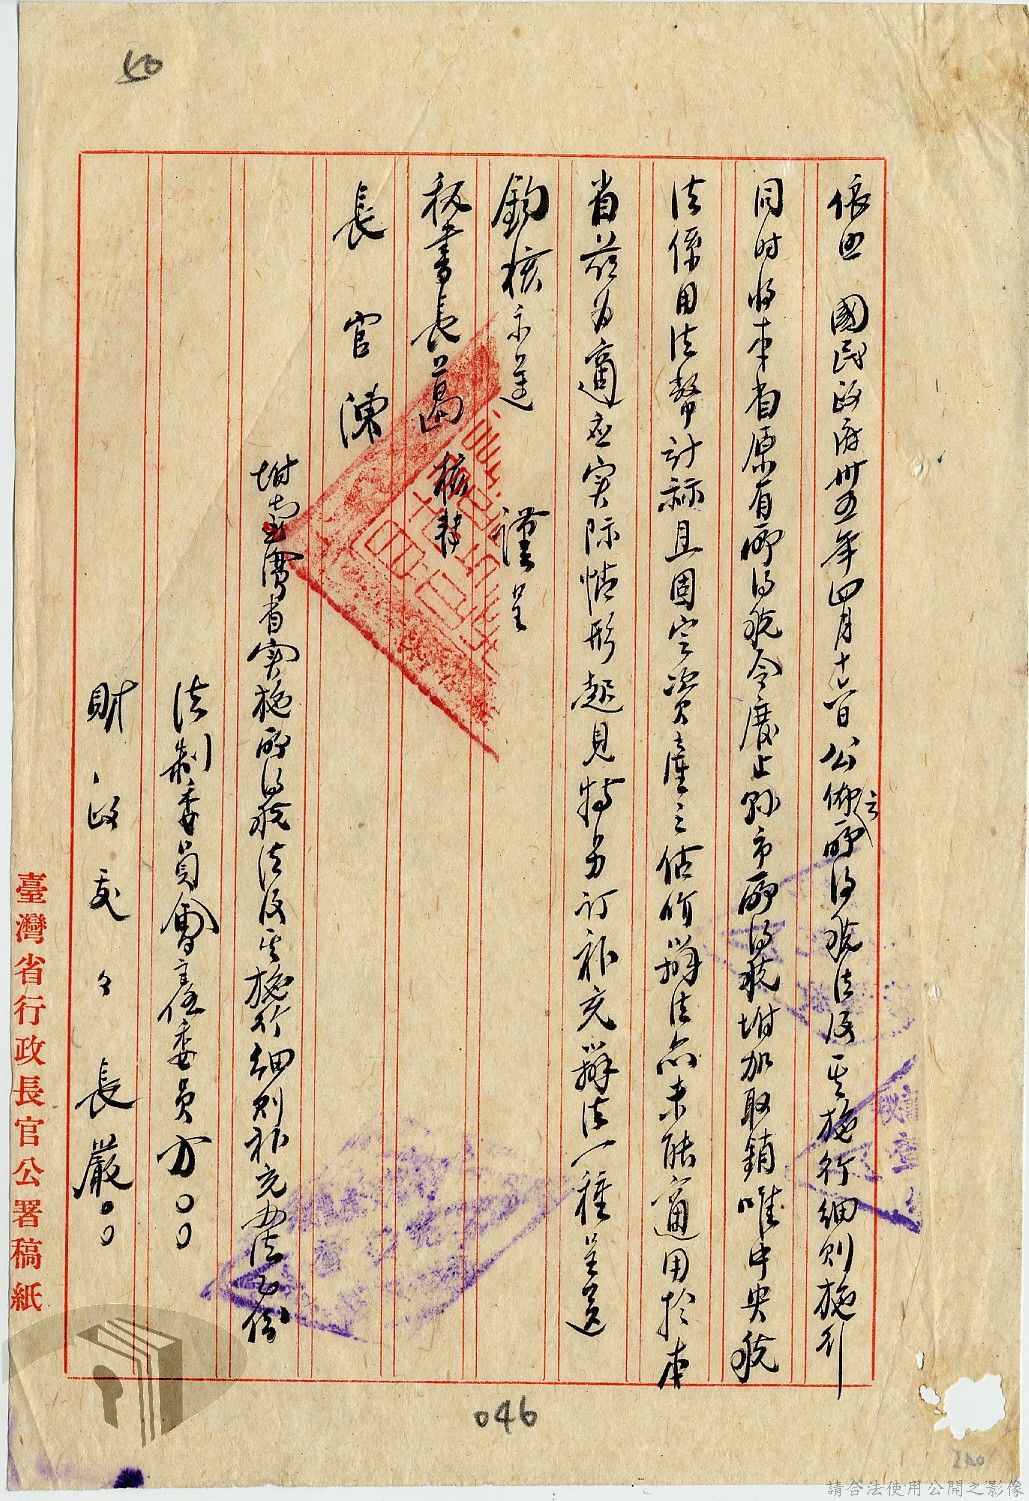 40
依照 國民政府卅五年四月十六日公佈之所得稅法及其施行細則施行
同时將本省原有所得稅令廢止縣市所得稅坿加取銷唯中央稅
法係用法幣計祘且固定資產之估價辦法亦未能適用於本
省茲为適应实际情形起見特另訂补充辦法一種呈送
鈞核示遵 謹呈
秘書長葛 核轉
長官陳
坿臺灣省实施所得稅法及其施行細則补充办法乙份
法制委員會主任委員方○○
財政处々長嚴○○
臺灣省行政長官公署稿紙
046
請合法使用公開之影像